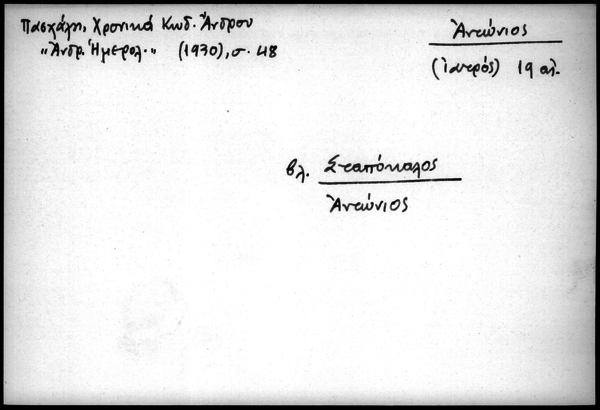 Πασχάλη, Χρονικά Κωδ. Ἄνδρου
"Ἀνδρ. Ἡμερολ." (1930), σ. 48
Ἀντώνιος
(ἰατρός) 19 αἰ.
βλ. Στραπόκαλος
Ἀντώνιος